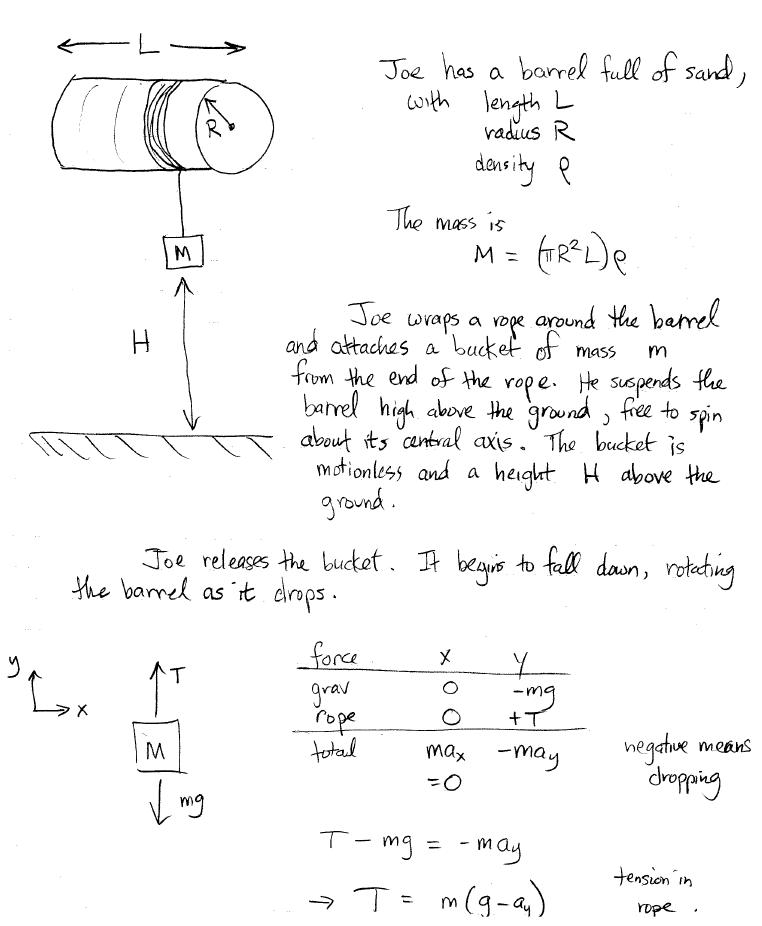 L
Joe has a barrel full of sand,
with length L
radius R
density ρ
R
The mass is
M = (πR²L)ρ
M
H
Joe wraps a rope around the barrel
and attaches a bucket of mass m
from the end of the rope. He suspends the
barrel high above the ground, free to spin
about its central axis. The bucket is
motionless and a height H above the
ground.
Joe releases the bucket. It begins to fall down, rotating
the barrel as it drops.
y
x
T
M
mg
force x y
grav 0 -mg
rope 0 +T
total max -may
=0
negative means
dropping
T - mg = - may
→ T = m(g-ay)
tension in
rope.